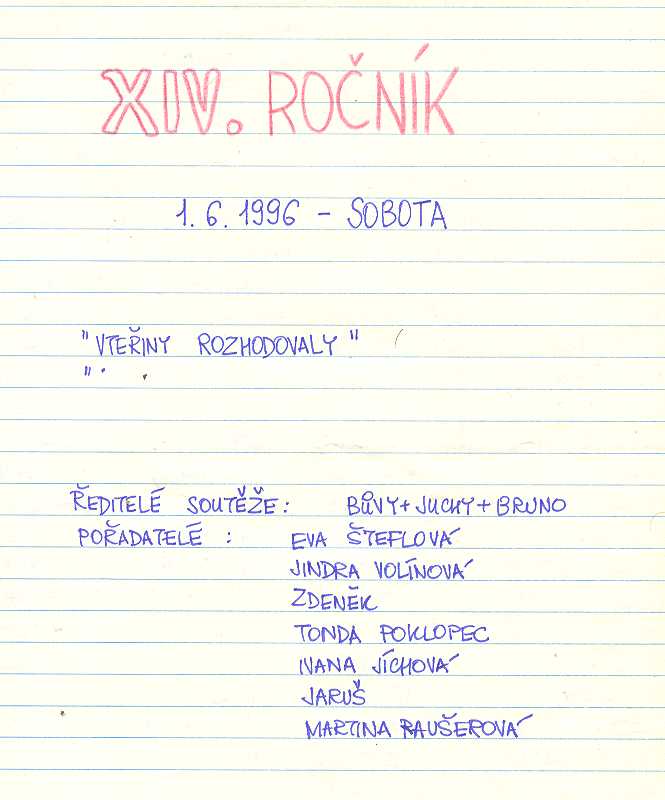 XIV. ROČNÍK
1. 6. 1996 - SOBOTA
"VTEŘINY ROZHODOVALY"
"
ŘEDITELÉ SOUTĚŽE: BŮVY + JUCHY + BRUNO
POŘADATELÉ : EVA ŠTEFLOVÁ
JINDRA VOLÍNOVÁ
ZDENĚK
TONDA POKLOPEC
IVANA JÍCHOVÁ
JARUŠ
MARTINA RAUŠEROVÁ